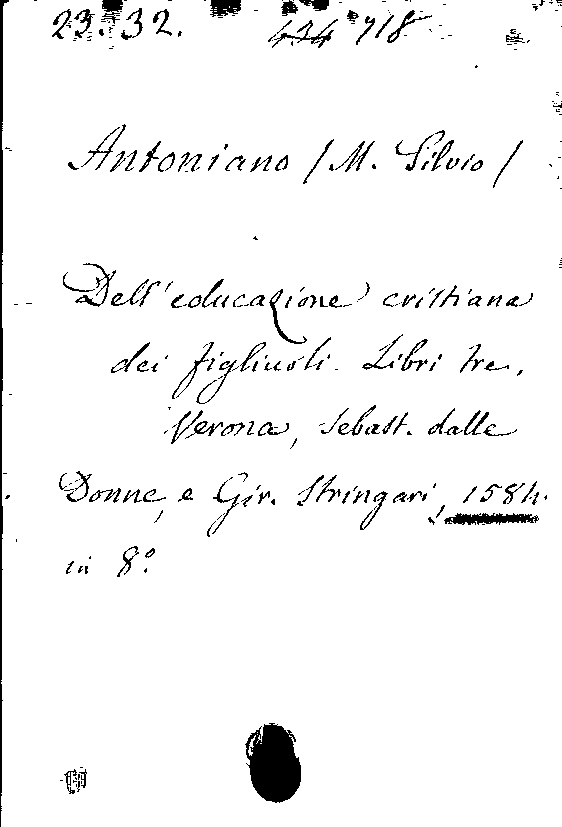 23. 32. 434 718
Antoniano / M. Silvio /
Dell'educazione cristiana
dei figliuoli. Libri tre,
Verona, Sebast. dalle
Donne, e Gir. Stringari, 1584.
in 8º